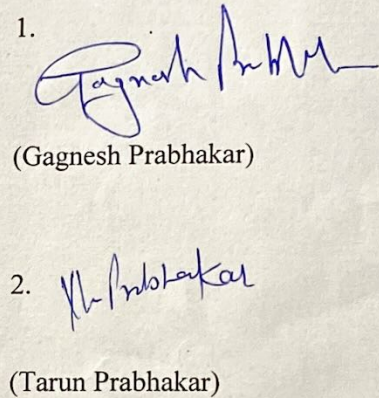 1.
Gagnesh
(Gagnesh Prabhakar)
2. Prabhakar
(Tarun Prabhakar)